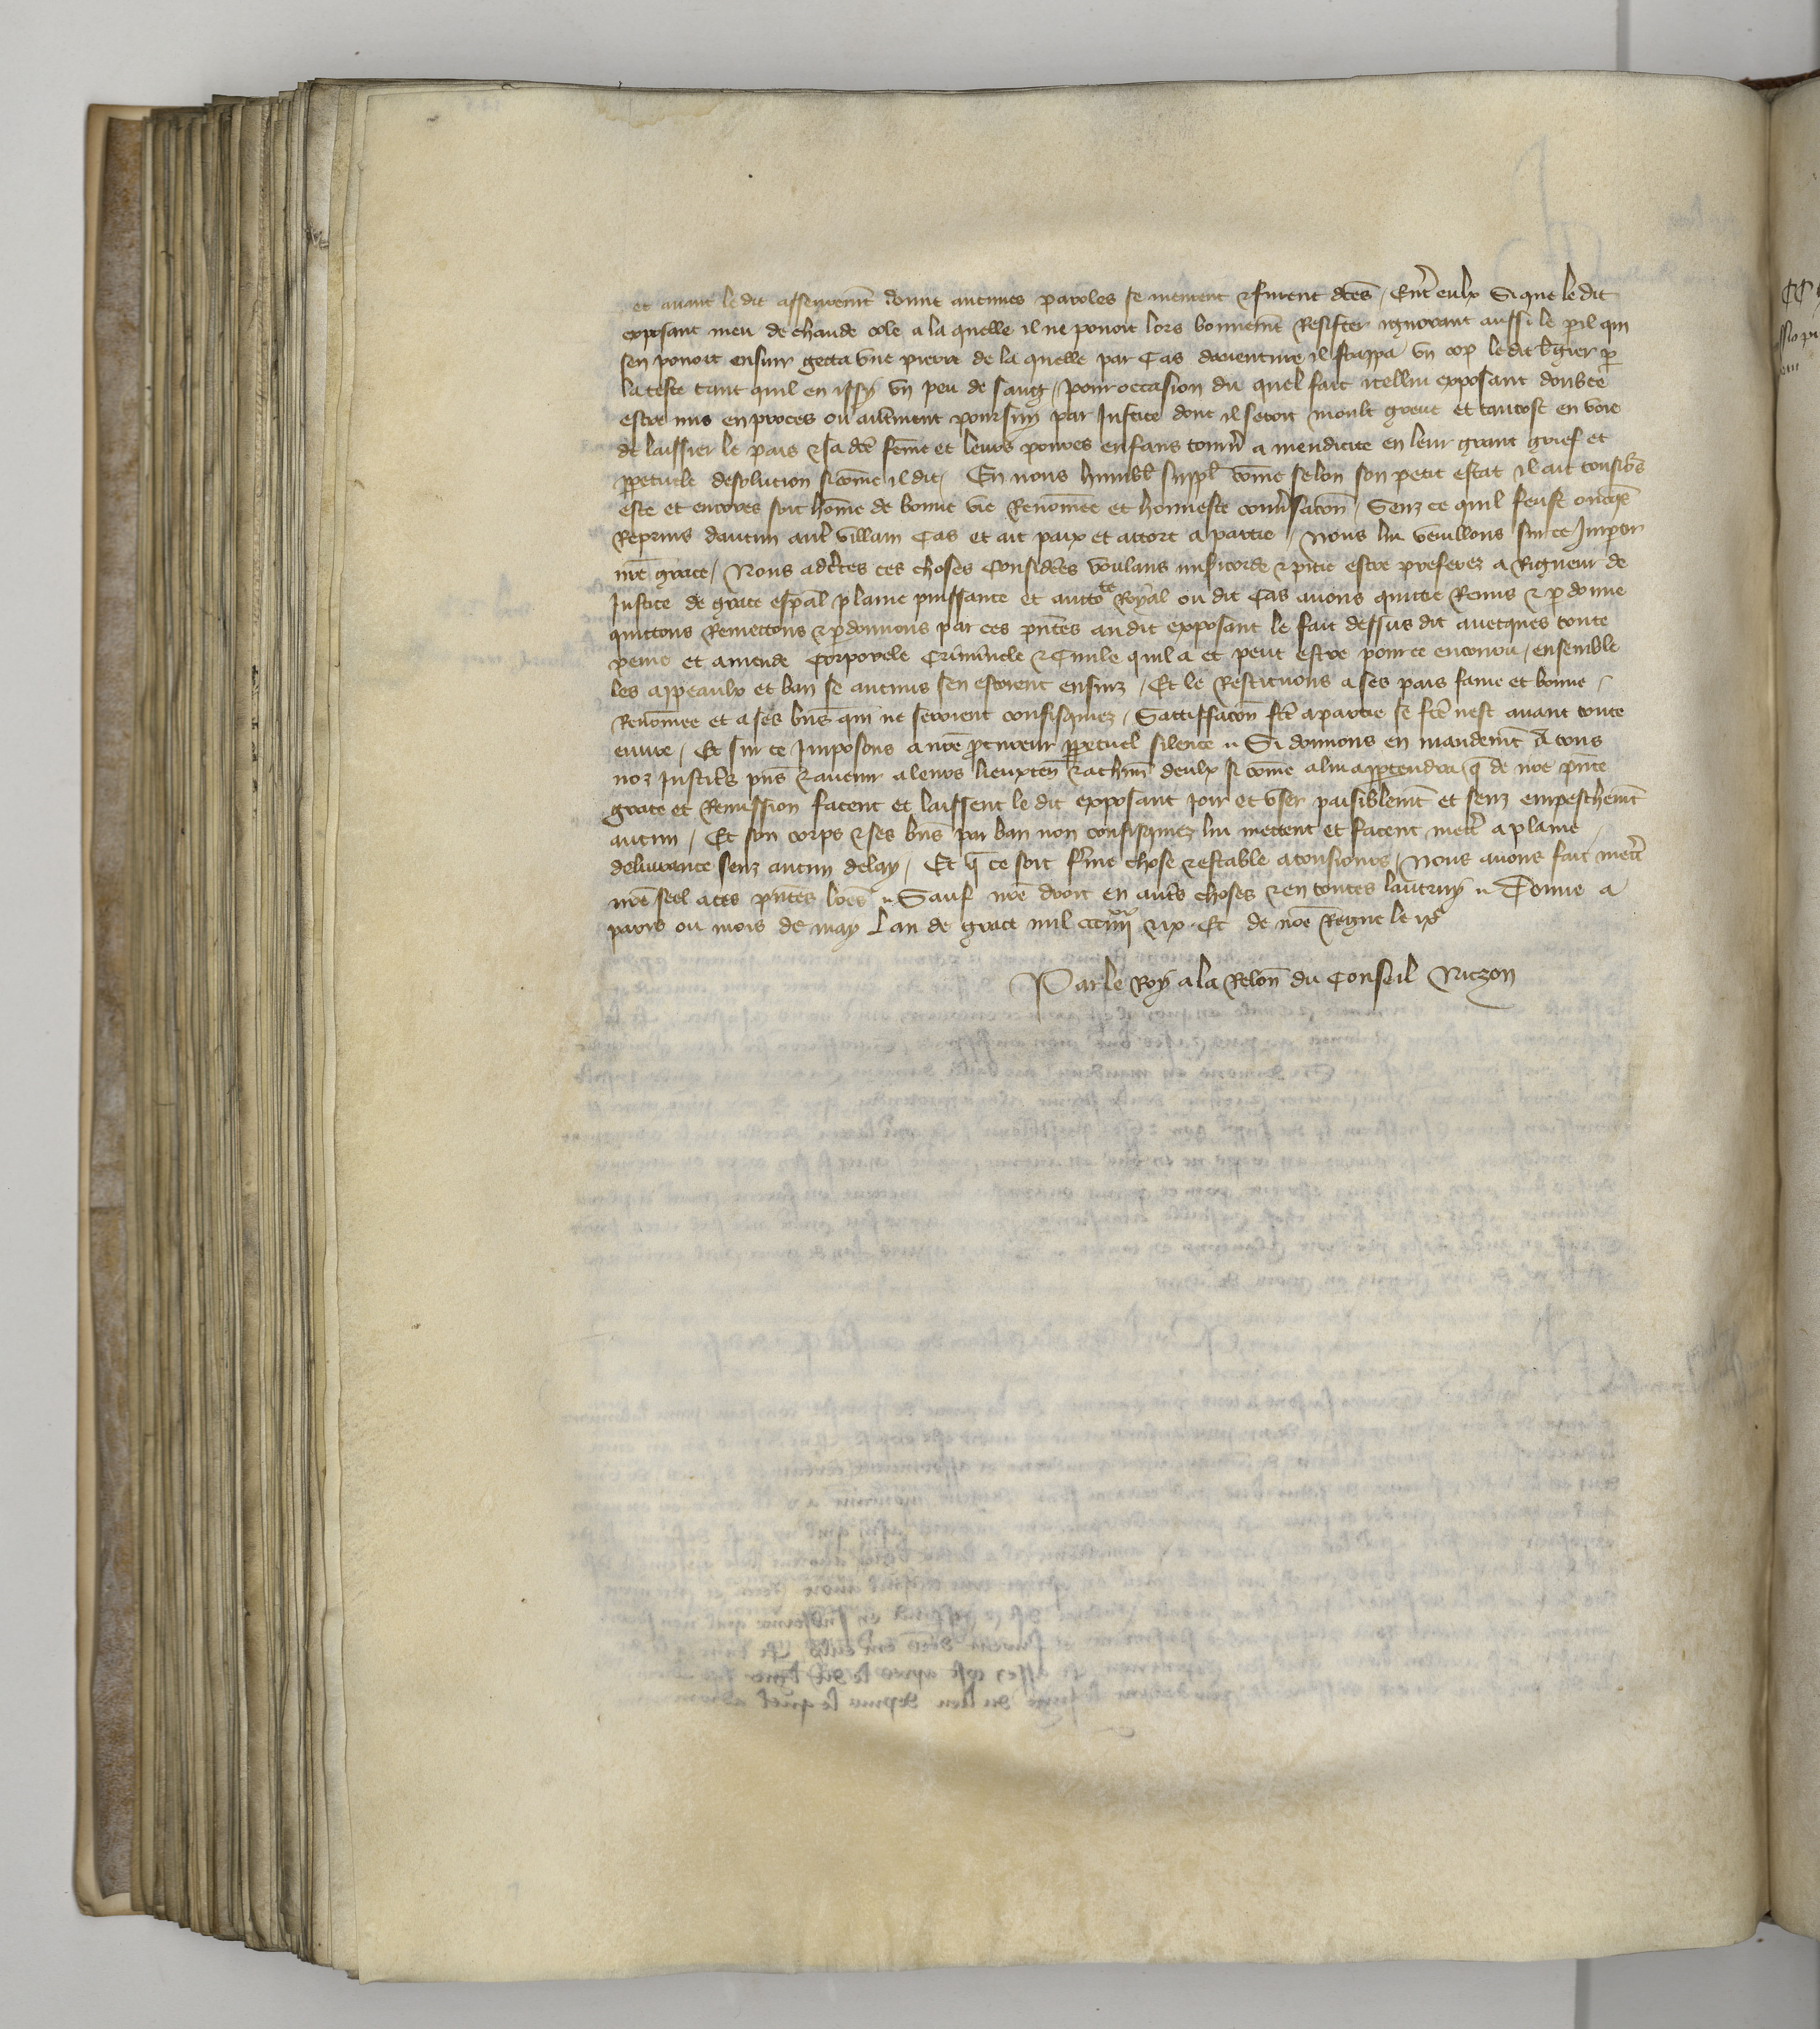 et auant le dit asseuremt̄ donne aucunes paroles se meurent ⁊ furent dc̄es / Entr̄ eulx Si que le dit
exposant meu de chaude cole a la quelle il ne pouoit lors bonnemt̄ Resister ignorant aussi le pil qui
sen pouoit ensuir getta vne pierre de la quelle par Cas dauenture il frappa vn cop ledit b̄gier p̄
la teste tant quil en yssy vn peu de sang / pour occasion du quel fait icellui exposant doubte
estre mis en proces ou autrm̄ent poursuy par Justice dont il seroit moult greue et tantost en voie
de laissier le pais ⁊ sa dc̄e fem̄e et leurs poures enfans tourn̄ a mendicite en leur grant grief et
p̄petuele desolution si com̄e il dit / En nous humbl̄ suppl̄ com̄e selon son petit estat il ait tousio᷑s
este et encores soit hom̄e de bonne vie Renom̄ee et honneste conu̾sacōn / Senz ce quil feust oncq̄s
Reprins daucun autr̄ villain Cas et ait paix et accort a partie / Nous lui vueillons sur ce Impar
nr̄e grace / Nous adc̄tes ces choses Considerēs voulans misericorde ⁊ pitie estre preferez a Rigueur de
Justice de grace esp̄al plaine puissance et aucto^te Royal ou dit Cas auons quictie Remis ⁊ p̄donne
quictons Remettons ⁊ p̄donnons par ces pn̄tes au dit exposant le fait dessus dit auecques toute
peine et amende Corporele Criminele ⁊ Ciuile quil a et peut estre pour ce encouru / ensemble
les appeaulx et ban se aucuns sen estoient ensuiz / Et le Restituons a ses pais fame et bonne /
Renom̄ee et a ses bn̄s qui ne seroient confisquez / Sattiffacōn fc̄e a partie se fc̄e nest auant toute
euure / Et sur ce Imposons a nr̄e p̄cureur p̄petuel silence // Si donnons en mandemt̄ A tous
noz Justic̄rs pn̄s ⁊ auenir a leurs lieuxten̄ ⁊ a chm̄ deulx si com̄e a lui app̄tendra q̄ de nr̄e pn̄te
grace et Remission facent et laissent le dit exposant joir et vser paisiblemt̄ et senz empeschemt̄
aucun / Et son corps ⁊ ses bn̄s par ban non confisquez lui mettent et facent mettr̄ a plaine /
deliurance senz aucun delay / Et q̄ ce soit f̄me chose ⁊ estable a tousiours / Nous auons fait mettr̄
nr̄e seel a ces pn̄tes lr̄es // Sauf nr̄e droit en autr̄s choses ⁊ en toutes lautruy // Donne a
paris ou mois de may Lan de grace mil ccc iiii^xx ⁊ ix . Et de nr̄e Regne le ix^e
Par le Roy a la Relon̄ du Conseil Niczon